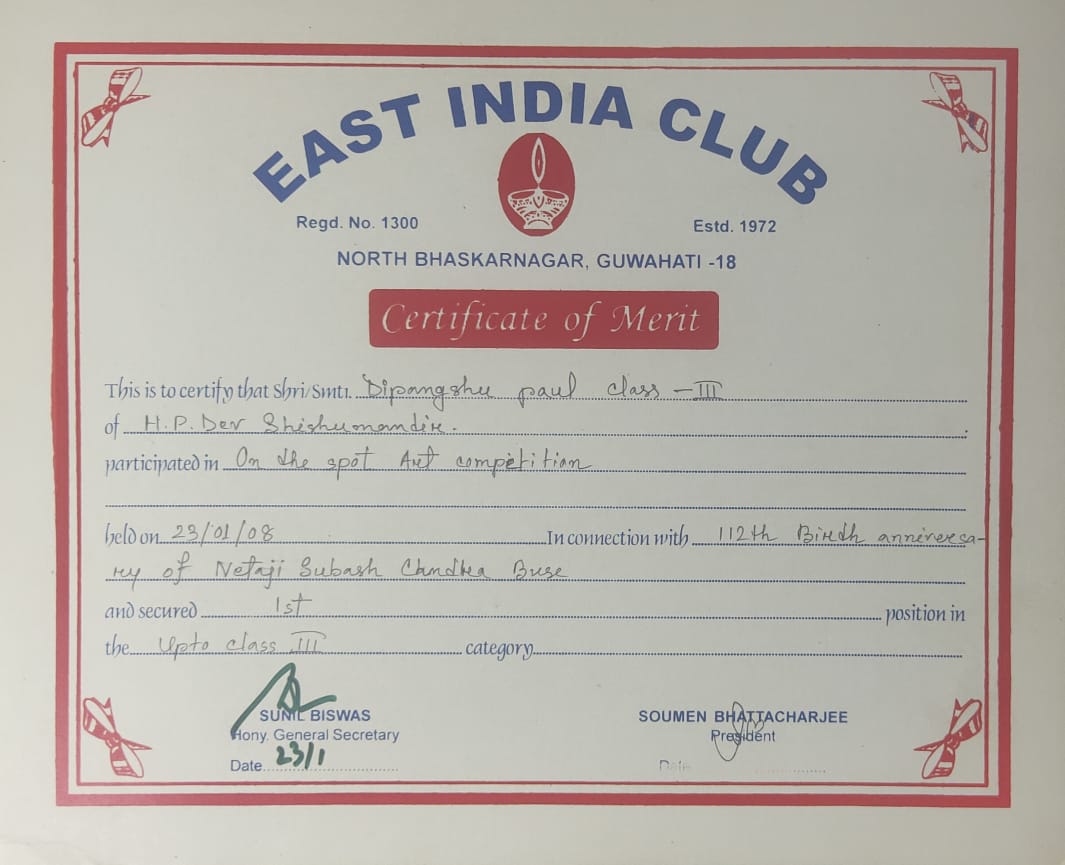 EAST INDIA CLUB
Regd. No. 1300 Estd. 1972
NORTH BHASKARNAGAR, GUWAHATI -18
Certificate of Merit
This is to certify that Shri/Smti. Dipangshu paul class - III
of H.P. Dev Shishumandir.
participated in On the spot Art competition
held on 23/01/08 In connection with 112th Birth anniversa-
ry of Netaji Subash Chandra Buse
and secured 1st position in
the Upto class III category
SUNIL BISWAS SOUMEN BHATTACHARJEE
Hony. General Secretary President
Date 23/1 Date